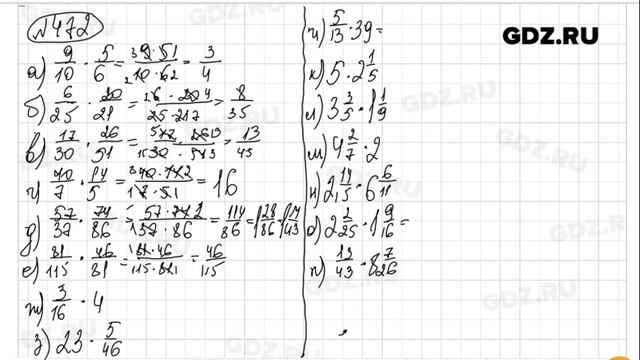 №472
а) 9/10 · 5/6 = 9·5/10·6 = 3/4
б) 6/25 · 20/21 = 6·20/25·21 = 8/35
в) 17/30 · 26/51 = 17·26/30·51 = 13/45
г) 40/7 · 14/5 = 40·14/7·5 = 16
д) 57/37 · 74/86 = 57·74/37·86 = 114/86 = 1 28/86 = 1 14/43
е) 81/115 · 46/81 = 81·46/115·81 = 46/115
ж) 3/16 · 4
з) 23 · 5/46
и) 5/13 · 39 =
к) 5 · 2 1/5
л) 3 3/5 · 1 1/9
м) 4 2/7 · 2
н) 2 14/15 · 6 6/11
о) 2 2/25 · 1 9/16 =
п) 13/43 · 8 7/26
GDZ.RU
GDZ.RU
GDZ.RU
GDZ.RU
GDZ.RU